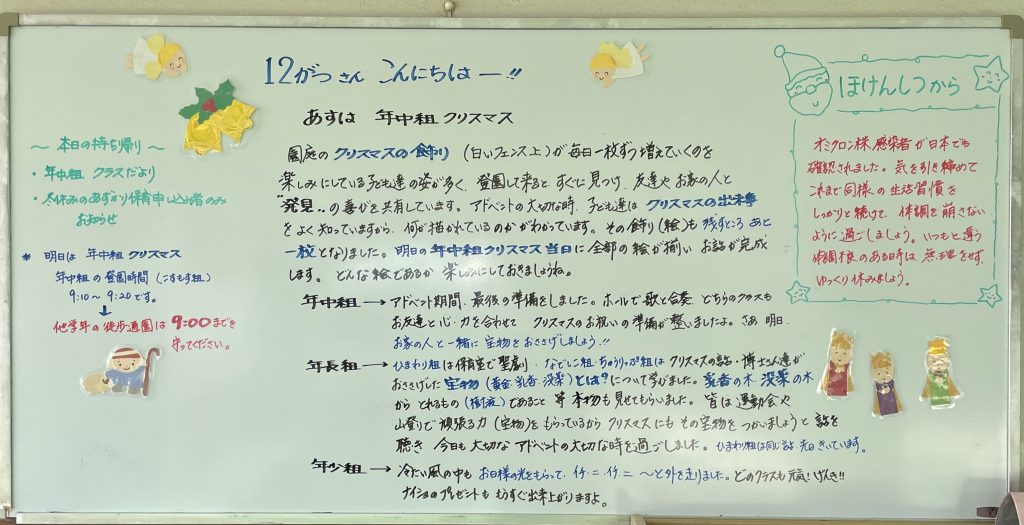 12がつさん こんにちはー!!
あすは 年中組 クリスマス
園庭の クリスマスの飾り (白いフェンス上) が毎日一枚ずつ増えていくのを
楽しみにしている子ども達の姿が多く、登園して来ると すぐに見つけ、友達や お家の人と
"発見"の喜びを共有しています。アドベントの大切な時、子ども達は クリスマスの出来事
をよく知っていますから、何が描かれているのかがわかっています。その飾り(絵)も 残すところ あと
一枚となりました。明日の年中組クリスマス当日に全部の絵が揃い お話が完成
します。どんな絵であるか 楽しみにしておきましょうね。
年中組 → アドベント期間、最後の準備をしました。ホールで歌と合奏 どちらのクラスも
お友達と心・力を合わせて クリスマスのお祝いの準備が整いましたよ。さあ 明日、
お家の人と一緒に 宝物を おささげしましょう!!
年長組 → ひまわり組は保育室で聖劇、なでしこ組・ちゅうりっぷ組は クリスマスの話・博士さん達が
おささげした宝物(黄金 乳香 没薬)とは?について学びました。乳香の木 没薬の木
から とれるもの(樹液)であること 等 本物も見せてもらいました。皆は運動会や
山登りで 頑張る力(宝物)を もらっているから クリスマスにも その宝物を つかいましょうと 話を
聴き 今日も 大切な アドベントの大切な時を過ごしました。ひまわり組は同じ話 先日きいています。
年少組 → 冷たい風の中も お日様の光をもらって、イチ・ニ イチ・ニ 〜と外を走りました。どのクラスも元気!げんき!!
ナイショの プレゼントも もうすぐ出来上がりますよ。
〜 本日の持ち帰り 〜
・年中組 クラスだより
・冬休みのあずかり保育申し込み者のみ
お知らせ
* 明日は 年中組 クリスマス
年中組の登園時間(こすもす組)
9:10〜9:20です。
↓
他学年の徒歩通園は9:00までを
守ってください。
ほけんしつから
オミクロン株 感染者が日本でも
確認されました。気を引き締めて
これまで同様の生活習慣を
しっかりと続けて、体調を崩さない
ように過ごしましょう。いつもと違う
体調 のある時は 無理をせず、
ゆっくり休みましょう。